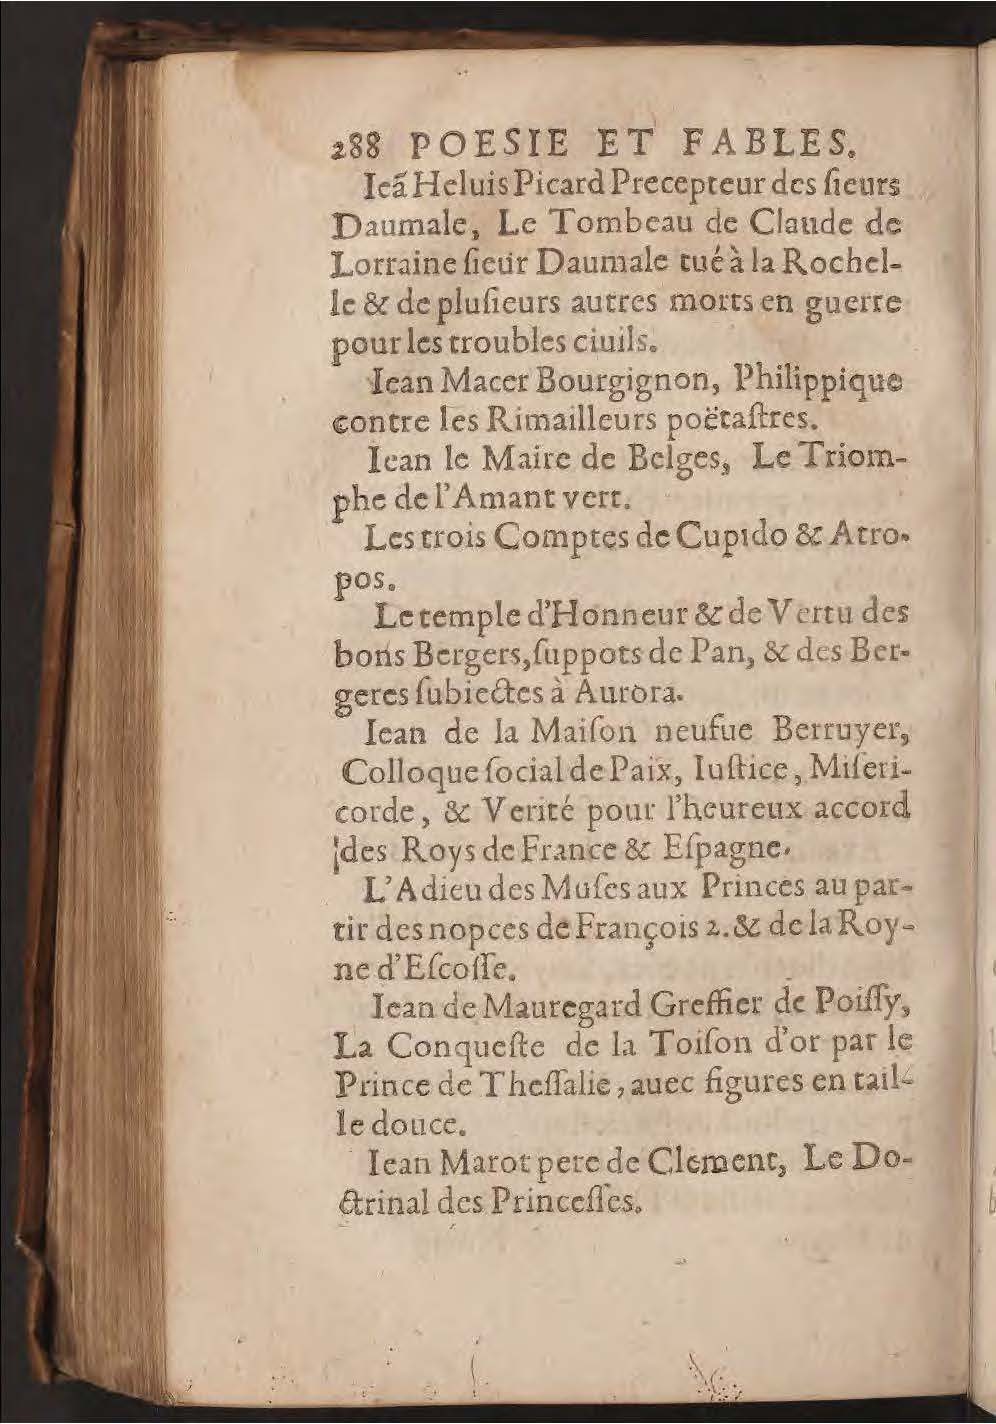 288 POESIE ET FABLES.
Ieã Heluis Picard Precepteur des ſieurs
Daumale, Le Tombeau de Claude de
Lorraine ſieur Daumale tué à la Rochel-
le & de pluſieurs autres morts en guerre
pour les troubles ciuils.
Iean Macer Bourgignon, Philippique
contre les Rimailleurs poëtaſtres.
Iean le Maire de Belges, Le Triom-
phe de l'Amant vert.
Les trois Comptes de Cupido & Atro-
pos.
Le temple d'Honneur & de Vertu des
bons Bergers, ſuppots de Pan, & des Ber-
geres ſubiectes à Aurora.
Iean de la Maiſon neufue Berruyer,
Colloque ſocial de Paix, Iuſtice, Miſeri-
corde, & Verité pour l'heureux accord
des Roys de France & Eſpagne.
L'Adieu des Muſes aux Princes au par-
tir des nopces de François 2. & de la Roy-
ne d'Eſcoſſe.
Iean de Mauregard Greffier de Poiſſy,
La Conqueſte de la Toiſon d'or par le
Prince de Theſſalie, auec figures en tail-
le douce.
Iean Marot pere de Clement, Le Do-
ctrinal des Princeſſes.